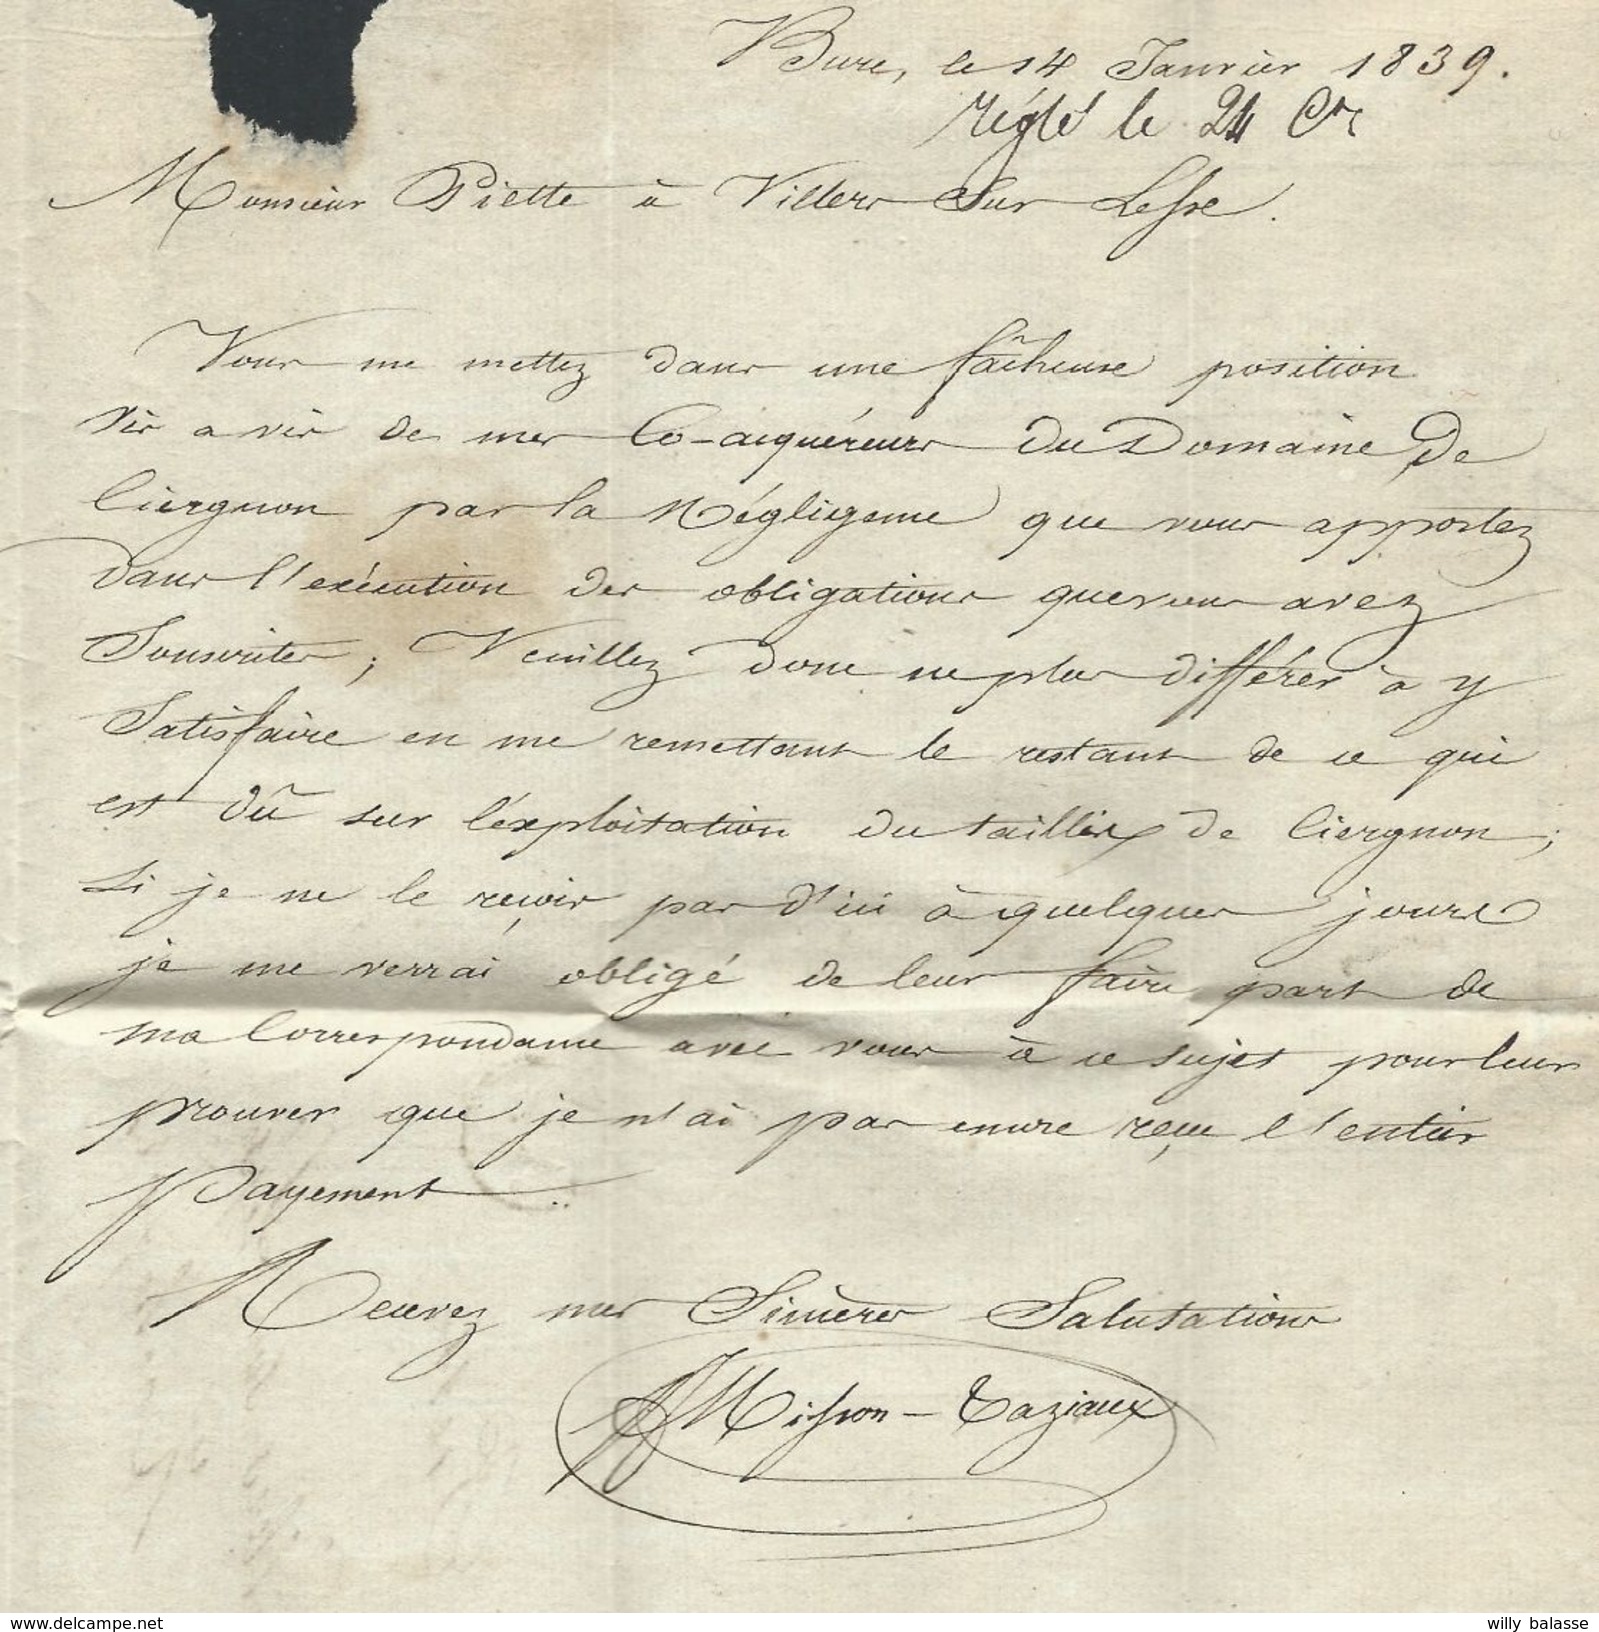 Bure, le 14 Janvier 1839.
réglé le 24 Ct
Monsieur Piette à Villers Sur Lesse.
Vous me mettez dans une fâcheuse position
vis a vis de mes Co-acquéreurs du Domaine de
Ciergnon par la Négligence que vous apportez
dans l'exécution des obligations que vous avez
Souscrites; Veuillez donc ne plus différer à y
Satisfaire en me remettant le restant de ce qui
est dû sur l'exploitation du taillis de Ciergnon;
Si je ne le reçois par d'ici à quelques jours
je me verrai obligé de leur faire part de
ma Correspondance avec vous à ce sujet pour leur
prouver que je n'ai pas encore reçu l'entier
payement.
Recevez mes Sincères Salutations
Misson-Taziaux
www.delcampe.net
willy balasse